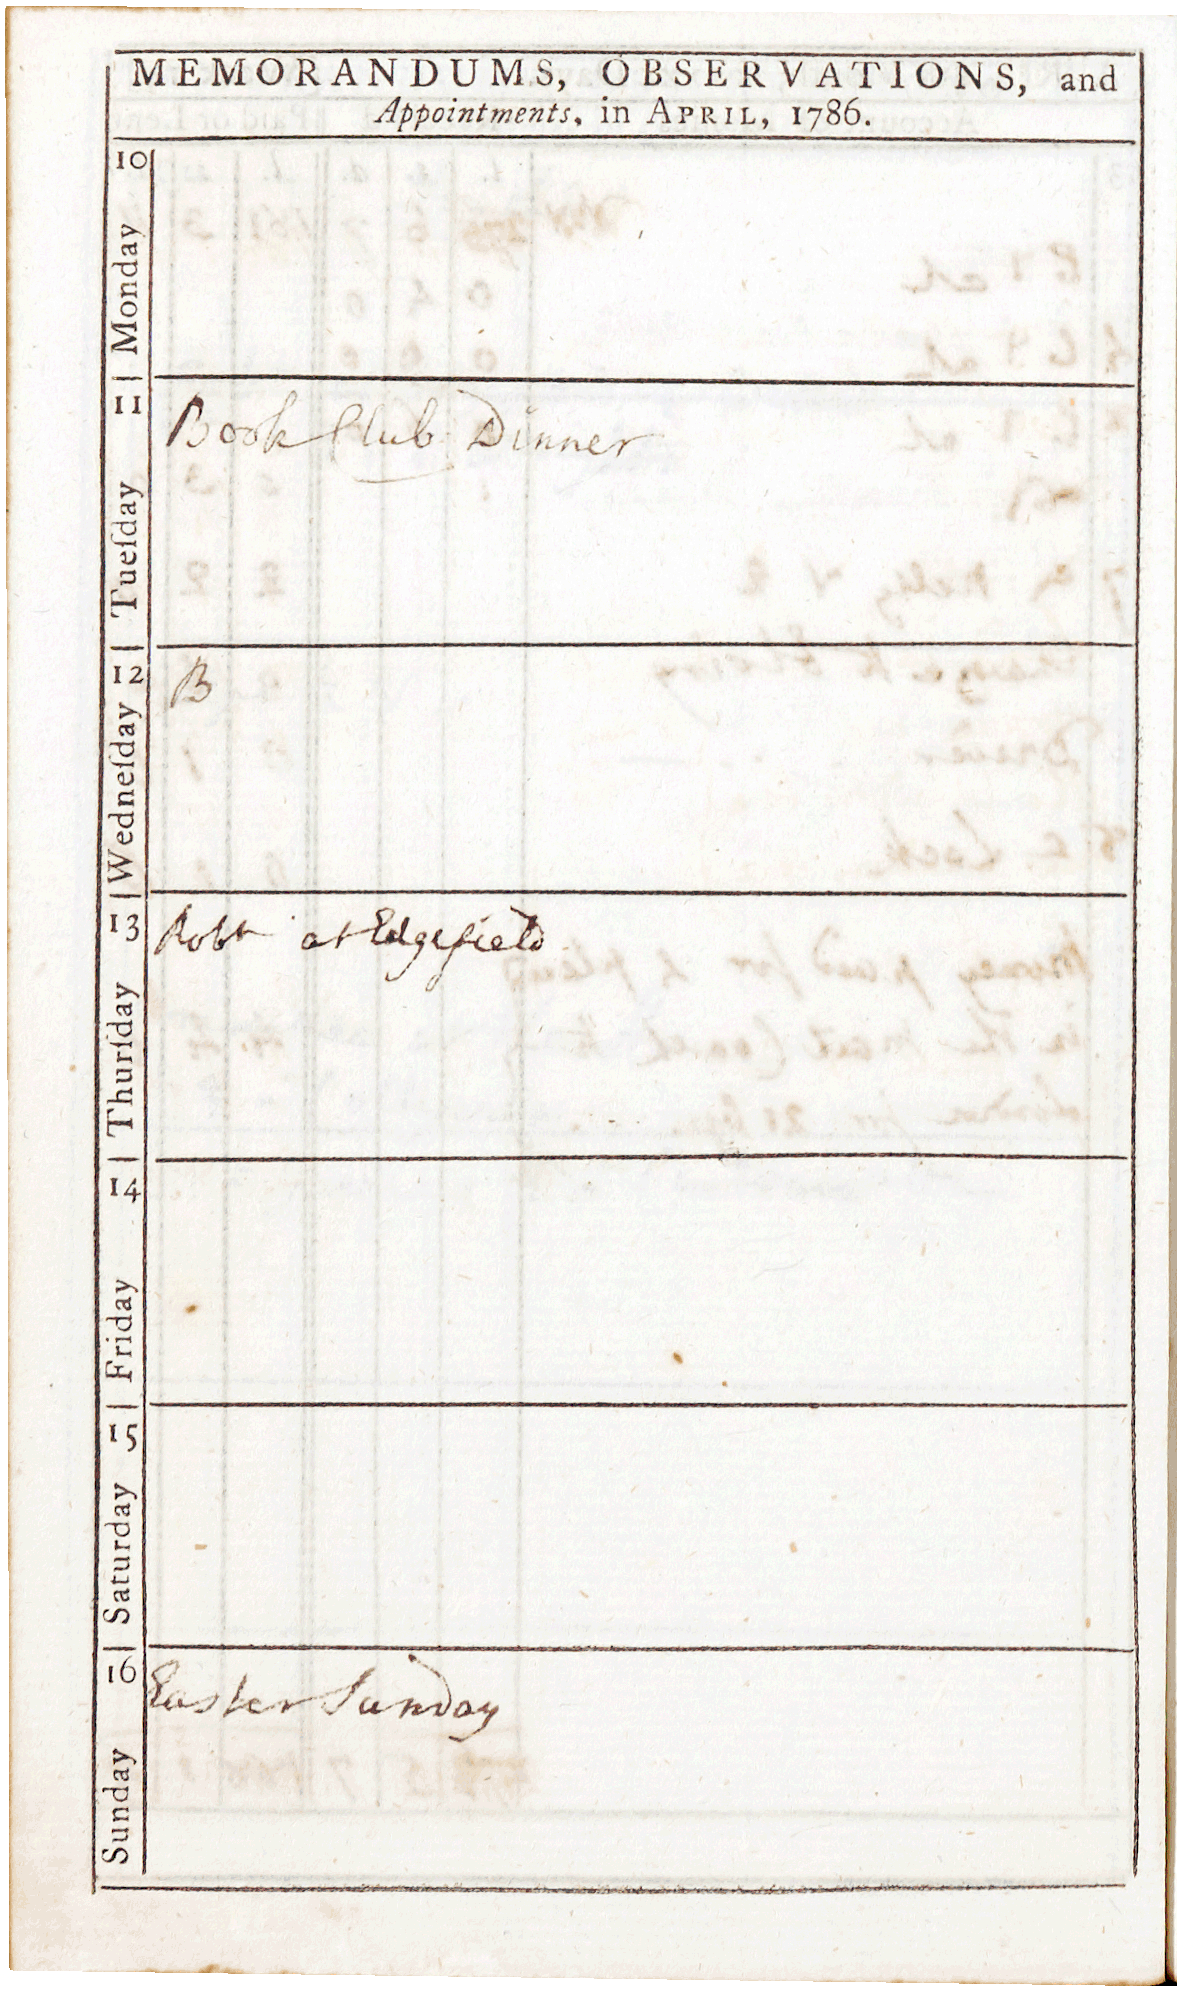 MEMORANDUMS, OBSERVATIONS, and
Appointments, in APRIL, 1786.
10
Monday
11
Tueſday
Book Club Dinner
12
Wedneſday
B
13
Thurſday
Robt at Edgefield
14
Friday
15
Saturday
16
Sunday
Easter Sunday